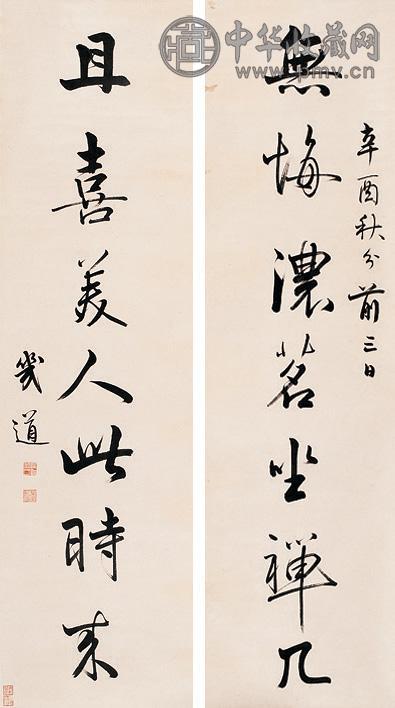 中华收藏网
www.pmv.cn
辛酉秋分前三日
無悔濃茗坐禪几
且喜美人此時来
幾道